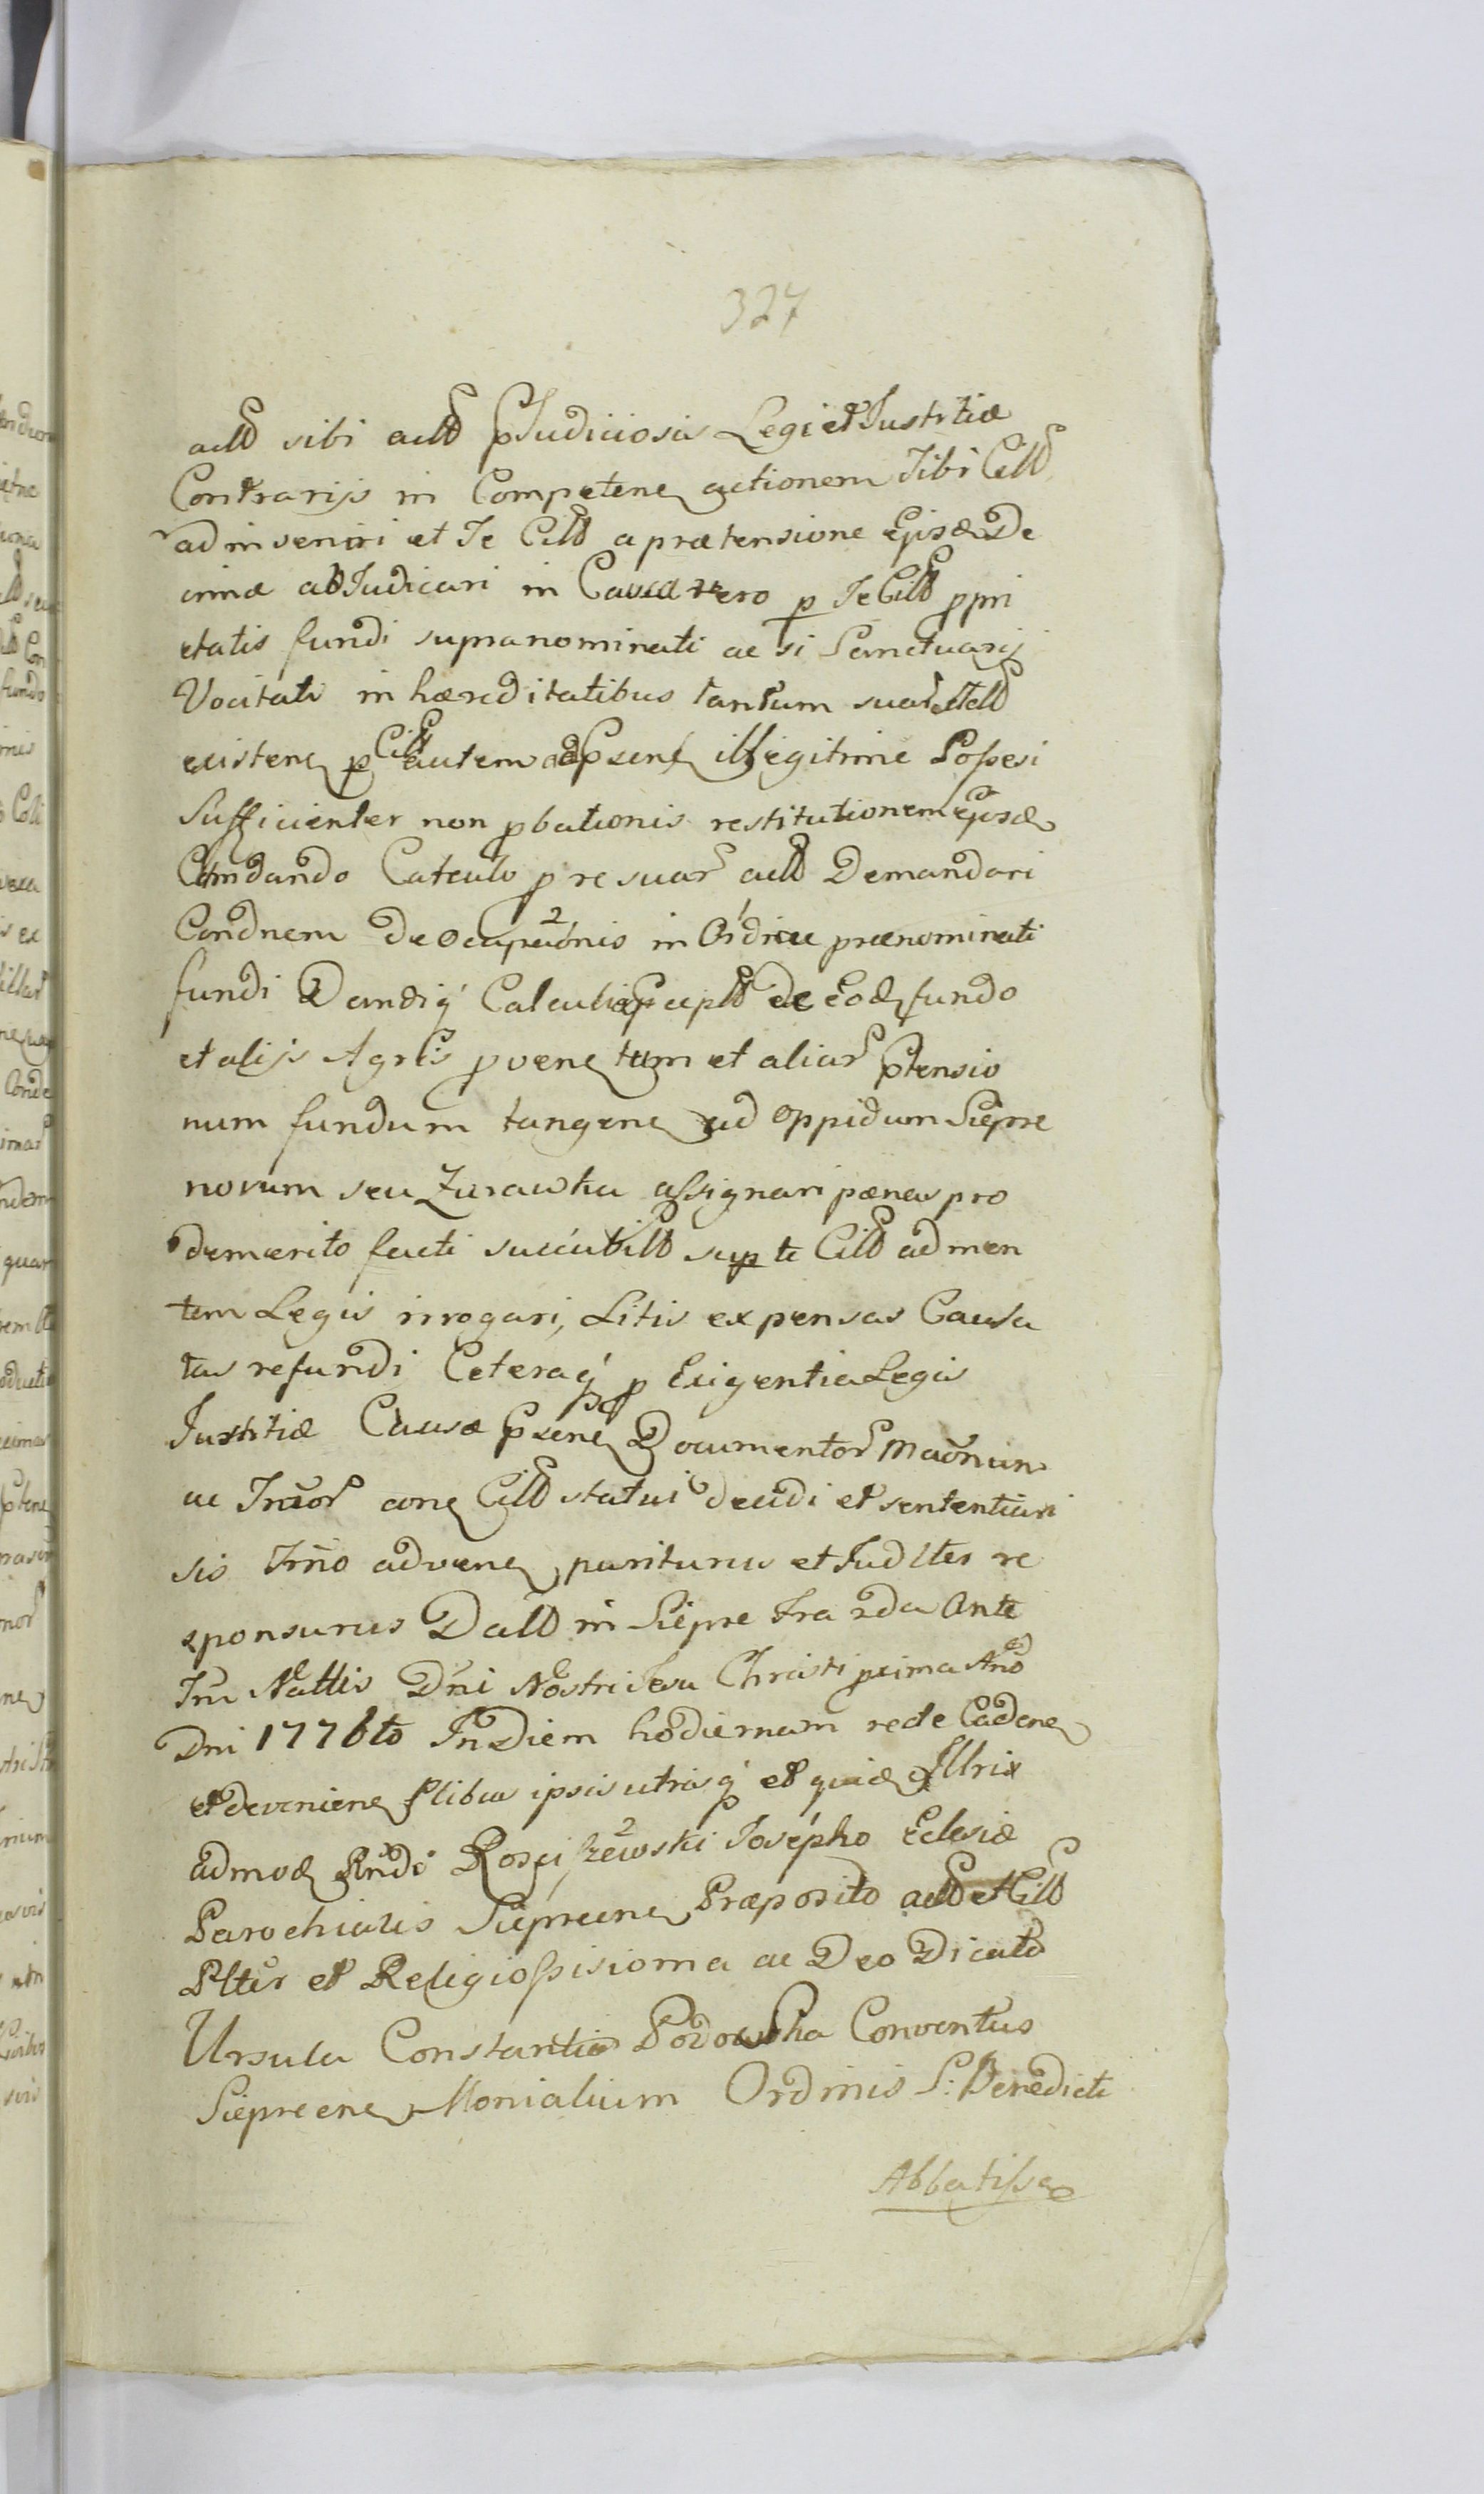 327
acttd sibi acttd pJudiciosis Legi et Justitiæ
Contrarijs in Competene actionem Tibi Cittd
ad inveniri et Te Cittd a prætensione Ejusd De
cimæ abJudicari in Causa vero p Te Cittd ppri
etatis fundi supranominati ac si Sanctuarij
Vocitati in hæreditatibus tantum suar
existene p Citt autem ad psens illegitime Possesi
Sufficienter non pbationis restitutionem ejusd
Comdando Calculo p re suar acttd Demandari
Condnem de Ocupaónis in Ordine prænominati
fundi Dandiq Calculi pceptt de Eod fundo
et alijs Agris pvene tum et aliar ptensio
num fundum tangene ad oppidum Siepre
novum seu Zurawka assignari pænas pro
demerito facti succubitt sup te Cittd ad men
tem Legis irrogari, Litis expensas Causa
tas refundi Ceteraq p Exigentia Legis
Justitiæ Causæ psene Documentor
ac Jncor cone Cittd statui decidi et sententiari
sis Trno advene pariturus et Judltes re
sponsurus Dattd in Siepre fra 2da Ante
Fm Nattis Dni Nostri Jesu Christi pxima Ano
Dni 1776to In Diem hodiernam recte Cadene
et deveniene ptibus ipsis utrisq et quid Illri
admod Rndo Rosciszewski Josepho Eclesiæ
Parochialis Siepreene Præposito acttd et Cittd
Ptter et Religiossisioma ac Deo Dicata
Ursula Constantia Podowska Conventus
Siepreene Monialium Ordinis S: Benedicti
Abbatissa